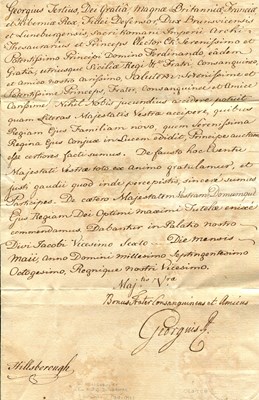 Georgius Tertius, Dei Gratiâ, Magnæ Britanniæ, Franciæ
et Hiberniæ Rex, Fidei Defensor, Dux Brunsvicensis
et Luneburgensis, Sacri Romani Imperii Archi-
Thesaurarius et Princeps Elector &c. Serenissimo et
Potentissimo Principi Domino Ferdinando eâdem
Gratiâ, utriusque Siciliæ Regi &c. Fratri, Consanguineo
et Amico nostro carissimo, Salutem. Serenissime et
Potentissime Princeps, Frater, Consanguinee et Amice
Carissime, Nihil Nobis jucundius accidere potuit
quam Literas Majestatis Vestræ accipere, quibus
Regiam Ejus Familiam novo, quem Serenissima
Regina Ejus Conjux in Lucem edidit, Principe auctam
esse certiores facti sumus. De fausto hoc Eventu
Majestati Vestræ toto ex animo gratulamur, et
justi gaudii quod inde percepistis, sincere sumus
Participes. De cætero Majestatem Vestram Domumque
Ejus Regiam Dei Optimi maximi Tutelæ enixè
commendamus. Dabantur in Palatio nostro
Divi Jacobi Vicesimo Sexto Die mensis
Maii, Anno Domini millesimo Septingentesimo
Octogesimo, Regnique nostri Vicesimo.
Majtis Vræ
Bonus Frater Consanguineus et Amicus
Georgius R.
Hillsborough